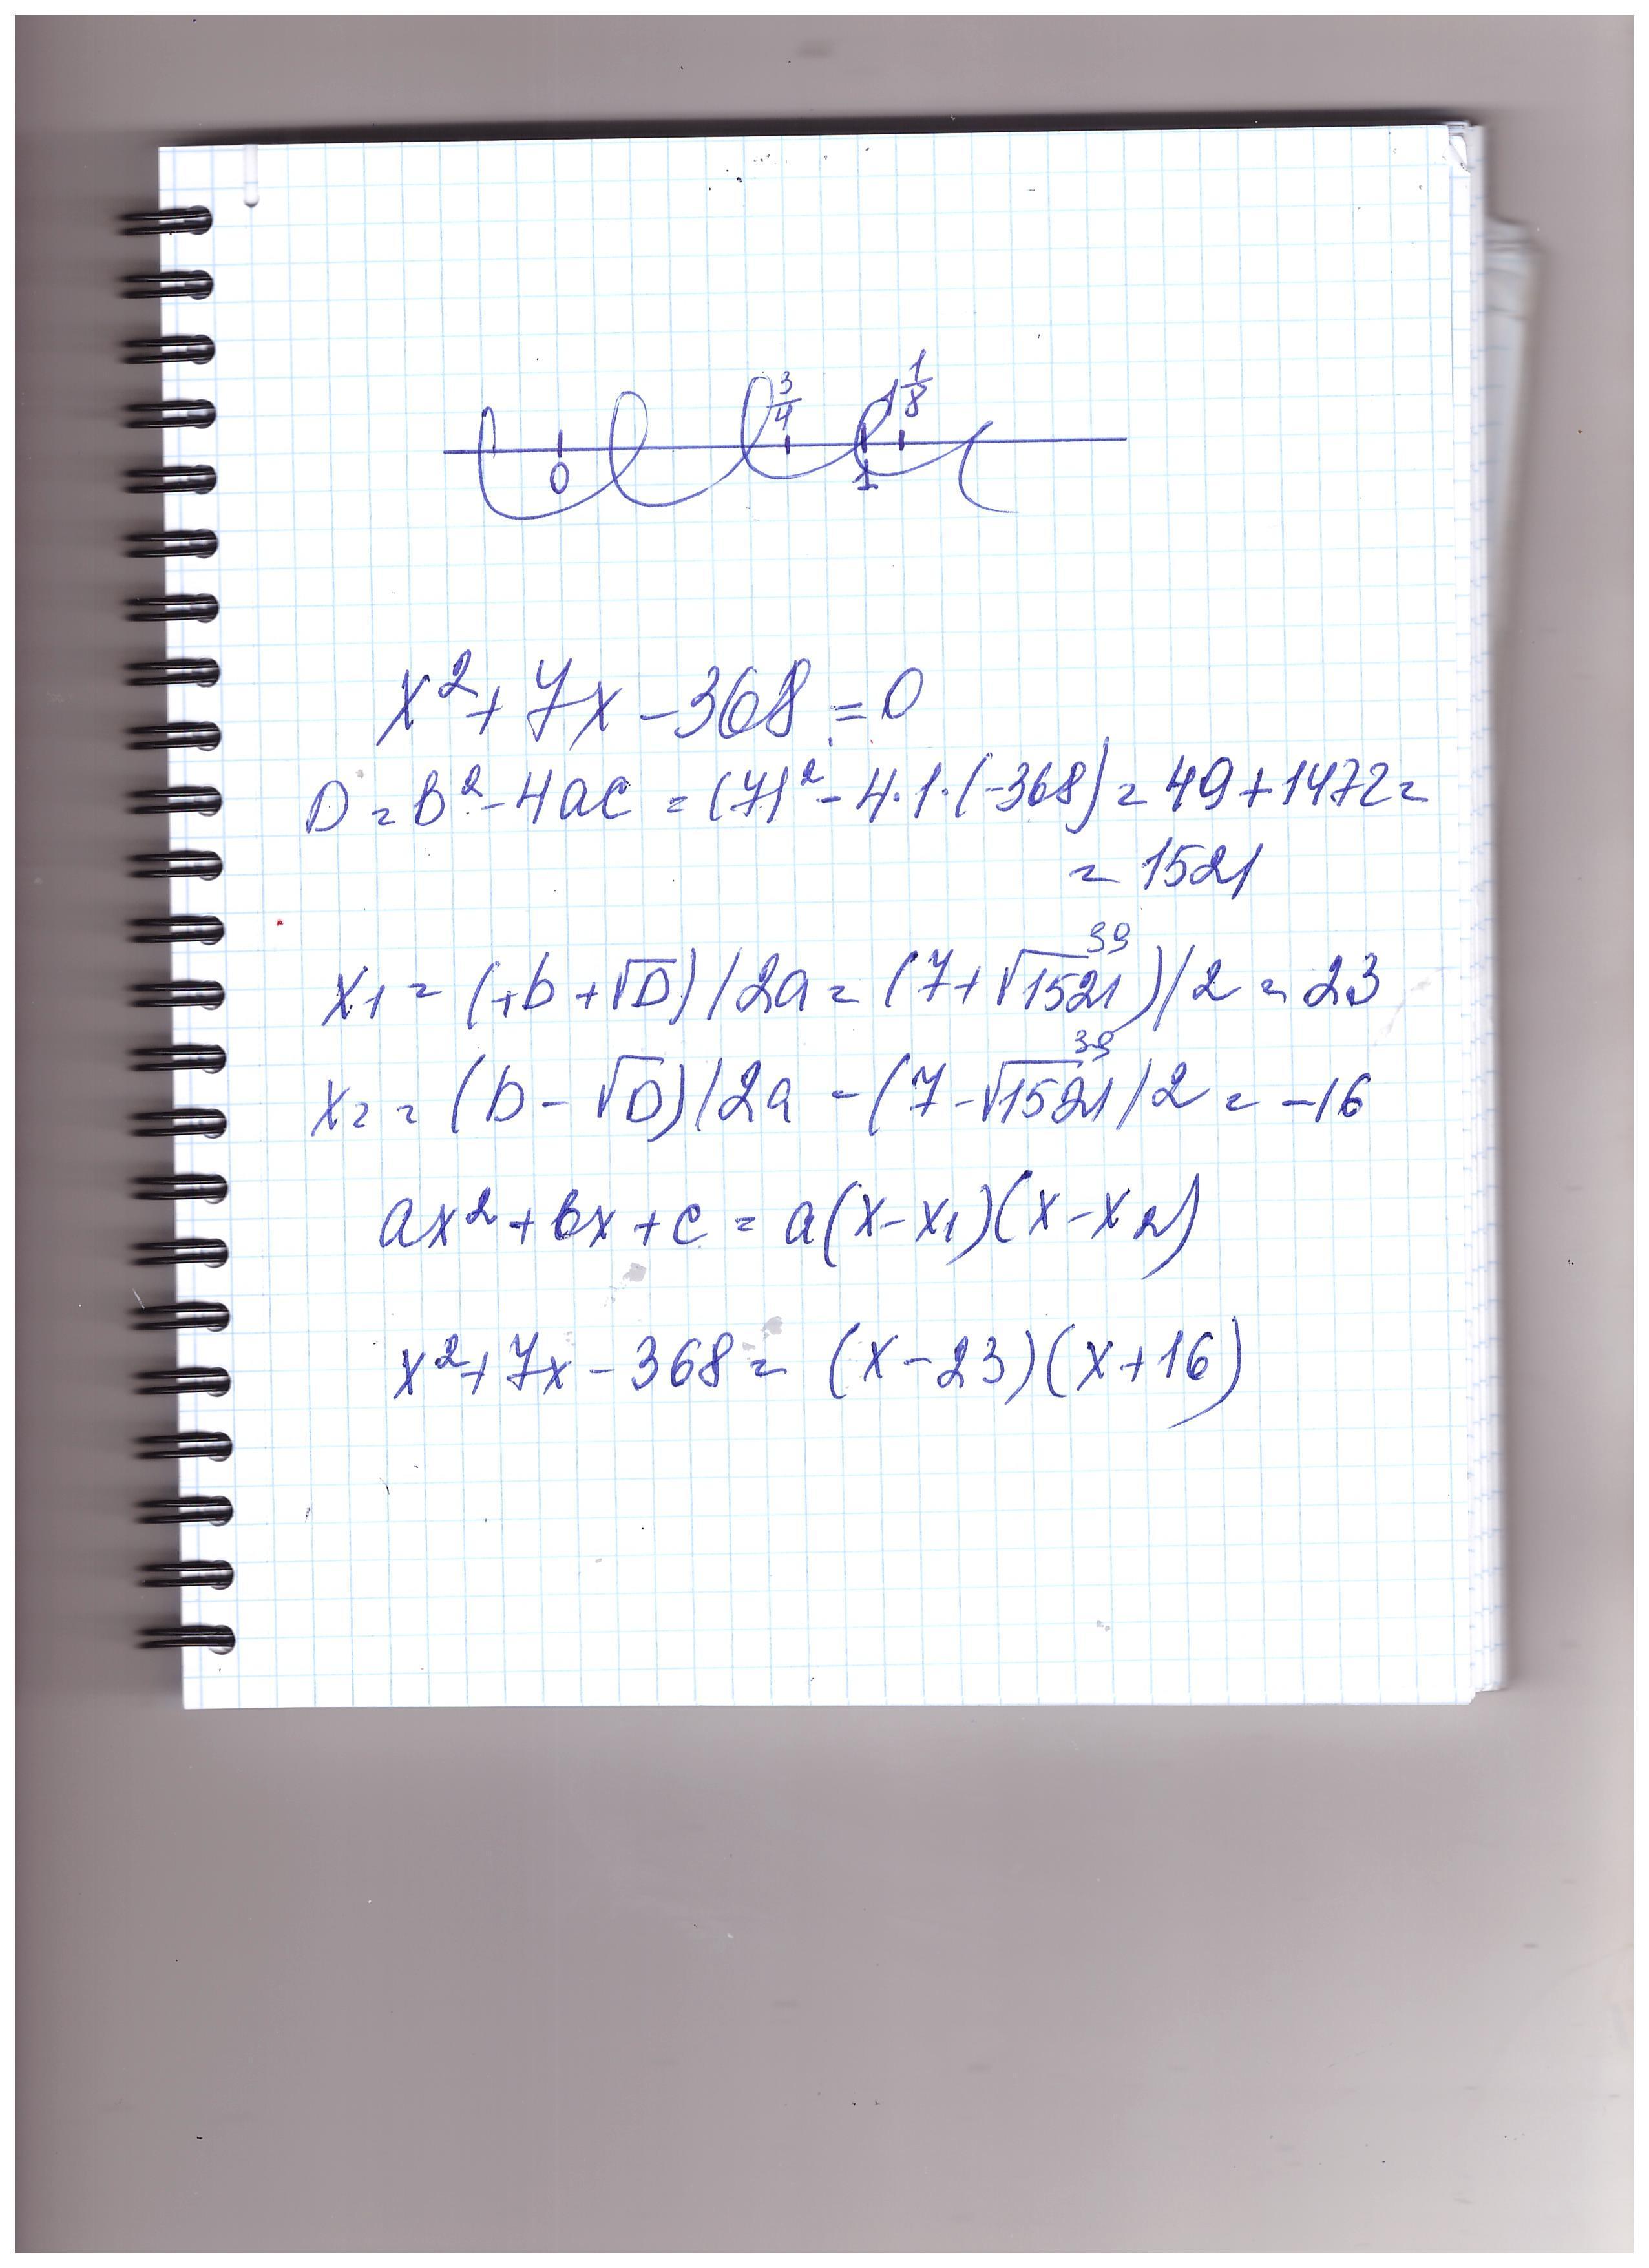 3/4 1 1/8
0 1
x² + 7x - 368 = 0
D = b² - 4ac = (7)² - 4·1·(-368) = 49 + 1472 =
= 1521
39
x₁ = (+b + √D) / 2a = (7 + √1521) / 2 = 23
39
x₂ = (b - √D) / 2a = (7 - √1521 / 2 = -16
ax² + bx + c = a(x - x₁)(x - x₂)
x² + 7x - 368 = (x - 23)(x + 16)